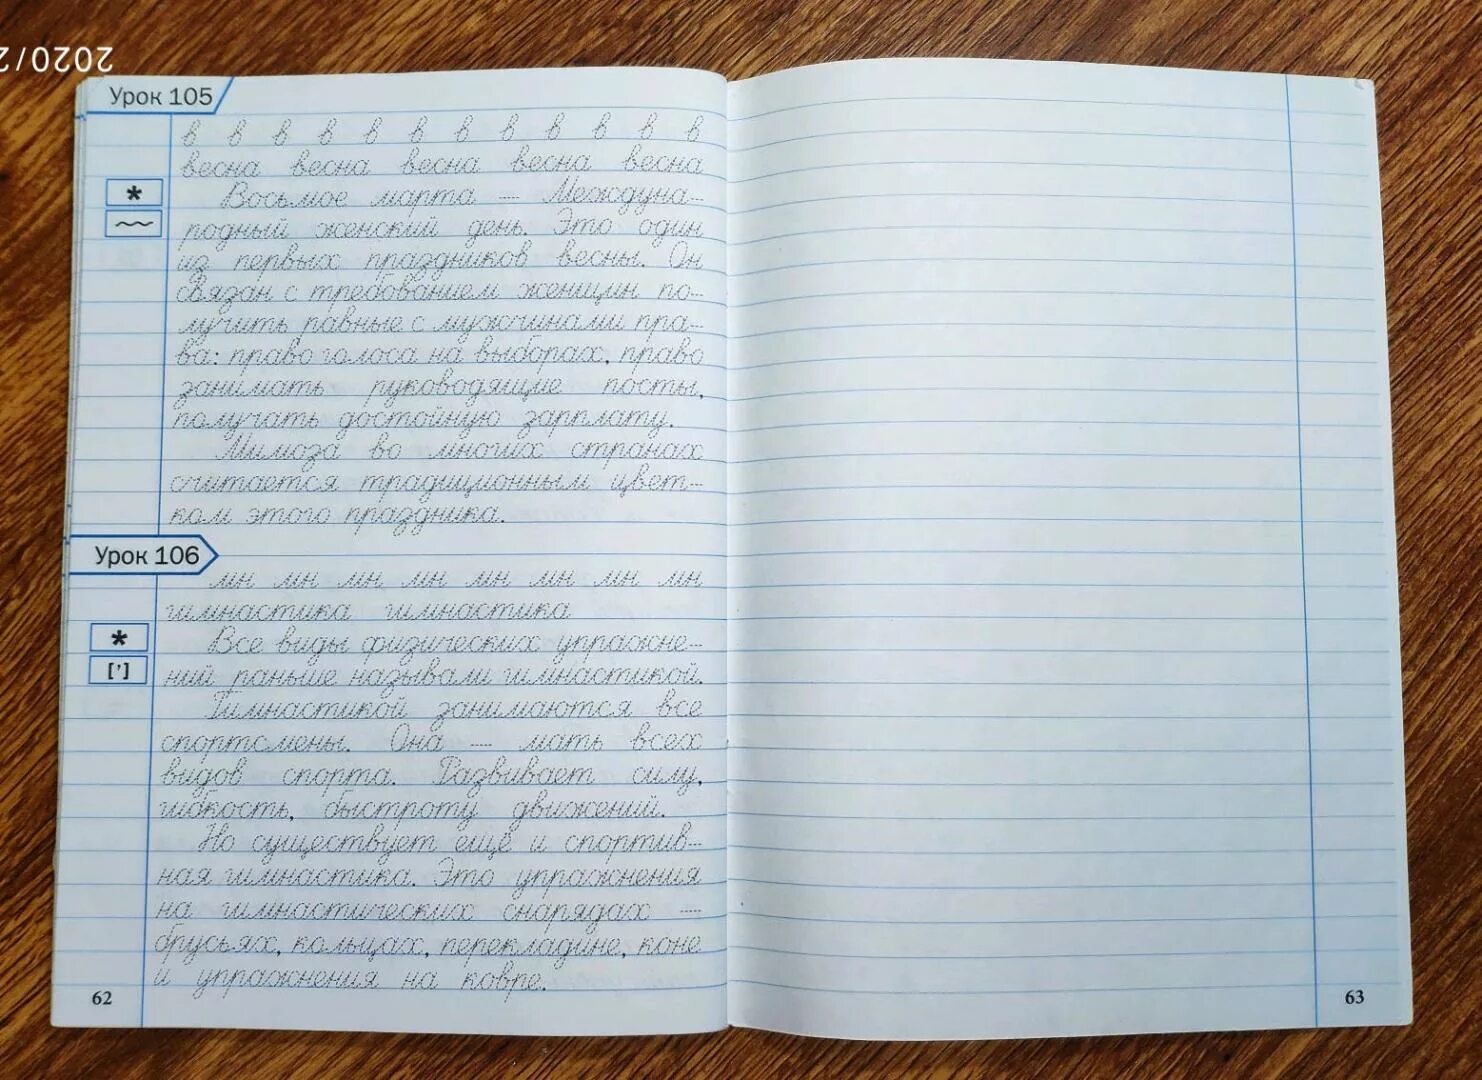 2020/2
Урок 105
в в в в в в в в в в в в
весна весна весна весна весна
*
Восьмое марта — Междуна-
родный женский день. Это один
из первых праздников весны. Он
связан с требованием женщин по-
лучить равные с мужчинами пра-
ва: право голоса на выборах, право
занимать руководящие посты,
получать достойную зарплату.
Мимоза во многих странах
считается традиционным цвет-
ком этого праздника.
Урок 106
мн мн мн мн мн мн мн мн
гимнастика гимнастика
*
Все виды физических упражне-
[’]
ний раньше называли гимнастикой.
Гимнастикой занимаются все
спортсмены. Она — мать всех
видов спорта. Развивает силу,
гибкость, быстроту движений.
Но существует ещё и спортив-
ная гимнастика. Это упражнения
на гимнастических снарядах —
брусьях, кольцах, перекладине, коне
и упражнения на ковре.
62
63